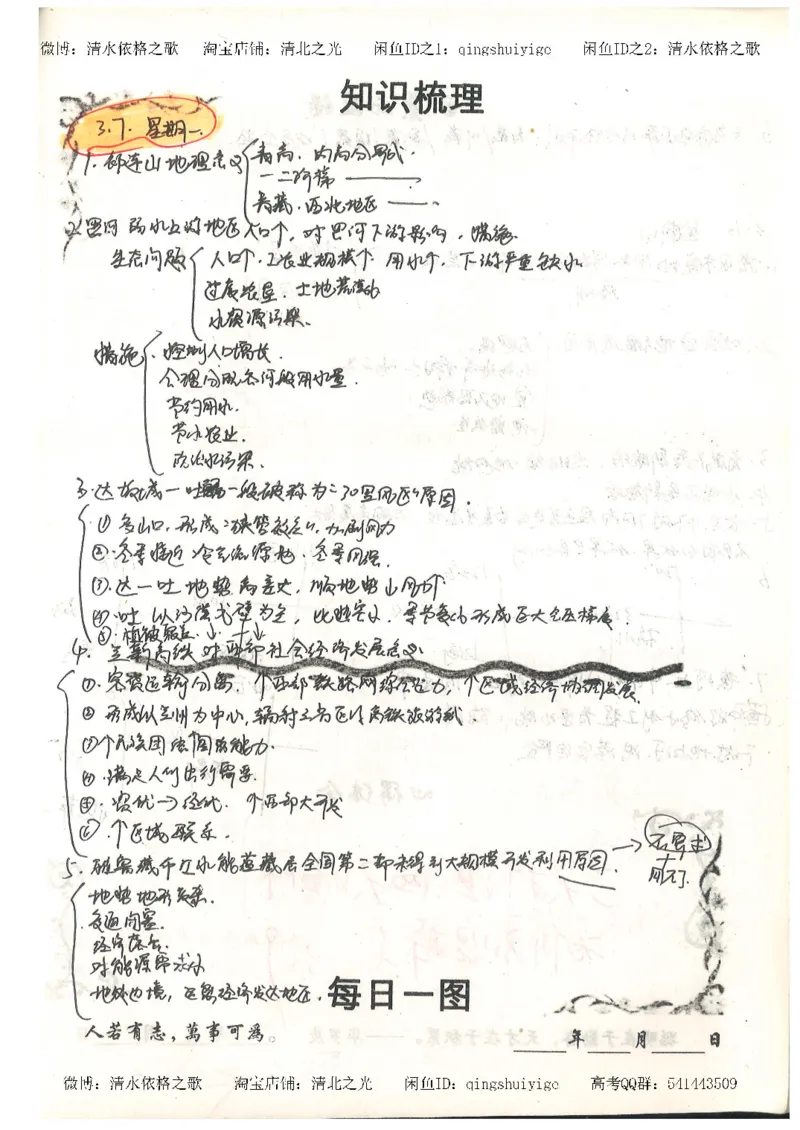 微博：清水依格之歌 淘宝店铺：清北之光 闲鱼ID之1：qingshuiyige 闲鱼ID之2：清水依格之歌
知识梳理
3.7. 星期一.
1. 祁连山地理意义 青高．内高分界线．
一二阶梯 ——
青藏．西北地区 ——
2. 黑河 弱水上游地区人口↑，对黑河下游影响，措施．
生态问题 人口↑．工农业规模↑ 用水↑．下游严重缺水
过度农垦．土地荒漠化
水资源污染．
措施．控制人口增长．
合理分配各河段用水量．
节约用水．
节水农业．
防治水污染．
3. 达坂城—吐鲁番一段被称为三十里风区原因．
① 多山口，形成狭管效应，加剧风力
②．冬季临近冷气流源地．冬季风强．
③．达—吐 地势高差大，顺地势 山风↑
④．吐 以沙漠戈壁为主，比热容小．
⑤．植被稀疏
4. 兰新高铁 对西部社会经济发展意义
①．客货运输分离．↑西部铁路网综合能力，↑区域经济协调发展．
② 形成以兰州为中心，辐射
③↑民族团结 ↑国防能力．
④．满足人们出行需要．
⑤．资优→经优．↑西部大开发
⑥．↑区域联系．
5. 雅鲁藏布江水能蕴藏居全国第二却未得到大规模开发利用原因．
地势地形复杂．
交通闭塞．
经济落后．
对能源需求小
地处边境，远离经济发达地区．
每日一图
人若有志，萬事可為。
年 月 日
微博：清水依格之歌 淘宝店铺：清北之光 闲鱼ID：qingshuiyige 高考QQ群：541443509